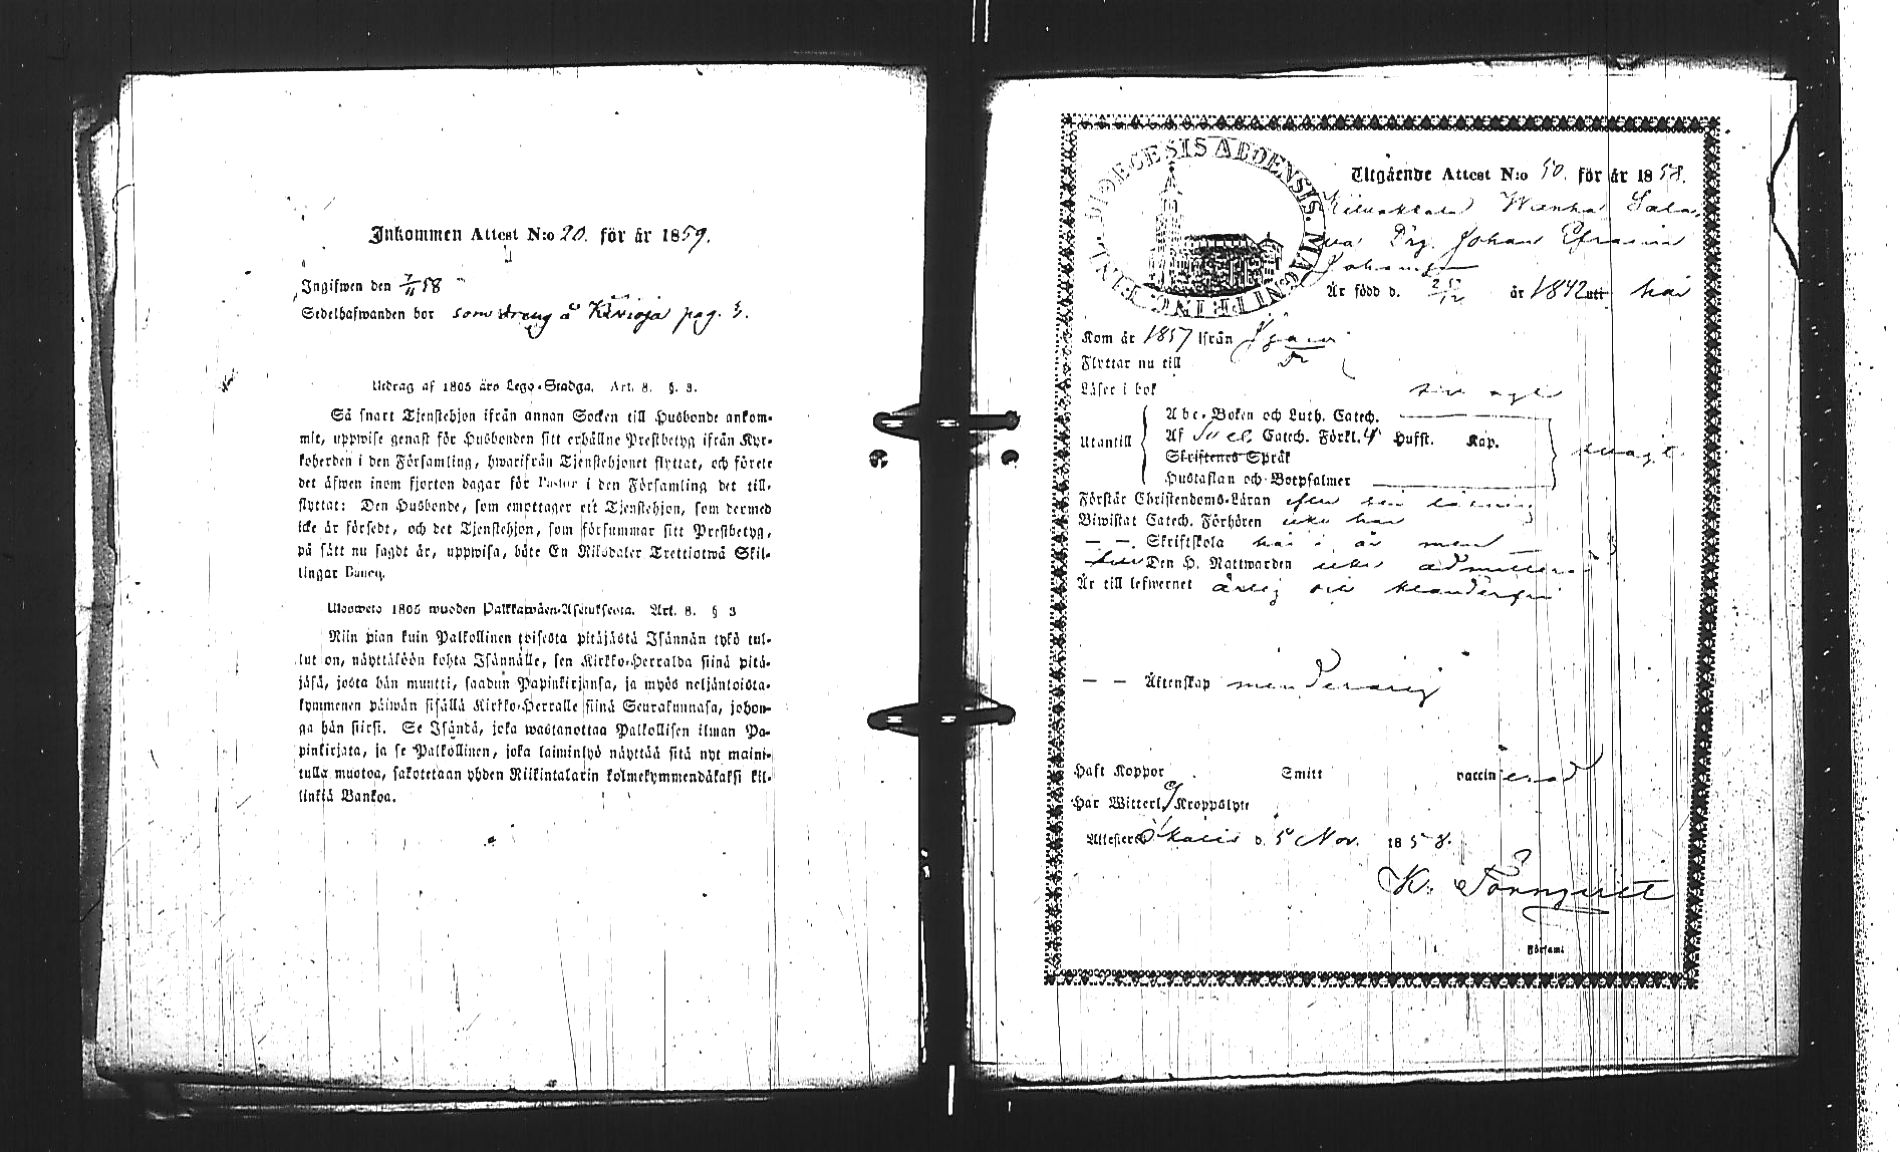 Inkommen Attest N:o 20. för år 1859.
Ingifwen den 7/11 58
Sedelhafwanden bor som dreng å Kivioja pag. 3.
Utdrag af 1805 års Lego-Stadga. Art. 8. §. 3.
Så snart Tjenstehjon ifrån annan Socken till Husbonde ankom-
mit, uppwise genast för Husbonden sitt erhållne Prestbetyg ifrån Kyr-
koherden i den Församling, hwarifrån Tjenstehjonet flyttat, och förete
det äfwen inom fjorton dagar för Pastor i den Församling det till-
flyttat: Den Husbonde, som emottager ett Tjenstehjon, som dermed
icke är försedt, och det Tjenstehjon, som försummar sitt Prestbetyg,
på sätt nu sagdt är, uppwisa, böte En Riksdaler Trettiotwå Skil-
lingar Banco.
Ulosweto 1805 wuoden Palkkawäen-Asetuksesta. Art. 8. § 3
Niin pian kuin Palkollinen toisesta pitäjästä Isännän tykö tul-
lut on, näyttäköön kohta Isännälle, sen Kirkko-Herralda siinä pitä-
jäsä, josta hän muutti, saadun Papinkirjansa, ja myös neljäntoista-
kymmenen päiwän sisällä Kirkko-Herralle siinä Seurakunnasa, johon-
ga hän siirsi. Se Isändä, joka wastanottaa Palkollisen ilman Pa-
pinkirjata, ja se Palkollinen, joka laiminlyö näyttää sitä nyt maini-
tulla muotoa, sakotetaan yhden Riikintalarin kolmekymmendäkaksi kil-
linkiä Bankoa.
DIOECESIS ABOENSIS. MAGNI
Utgående Attest N:o 50. för år 1858.
Wanha
Drg. Johan Efraim
Johansson
Är född d. 25/12 år 1842 utt här
Kom år 1857 ifrån
Flyttar nu till
Läser i bok
Utantill
Abc-Boken och Luth. Catech.
Af Catech. Förkl. 4 Hufst. Kap.
Skriftenes Språk
Hustaflan och Botpsalmer
Förstår Christendoms-Läran efter sin
Biwistat Catech. Förhören icke här
— — Skriftskola här i år men
Den H. Nattwarden icke
Är till lefwernet ärlig och klanderfri
— — Äktenskap minderårig
Haft Koppor Smitt vaccinerad
Har Witterl. Kroppslyte
Attesterar d. 5 Nov. 1858.
K. Törnqvist
i Församl